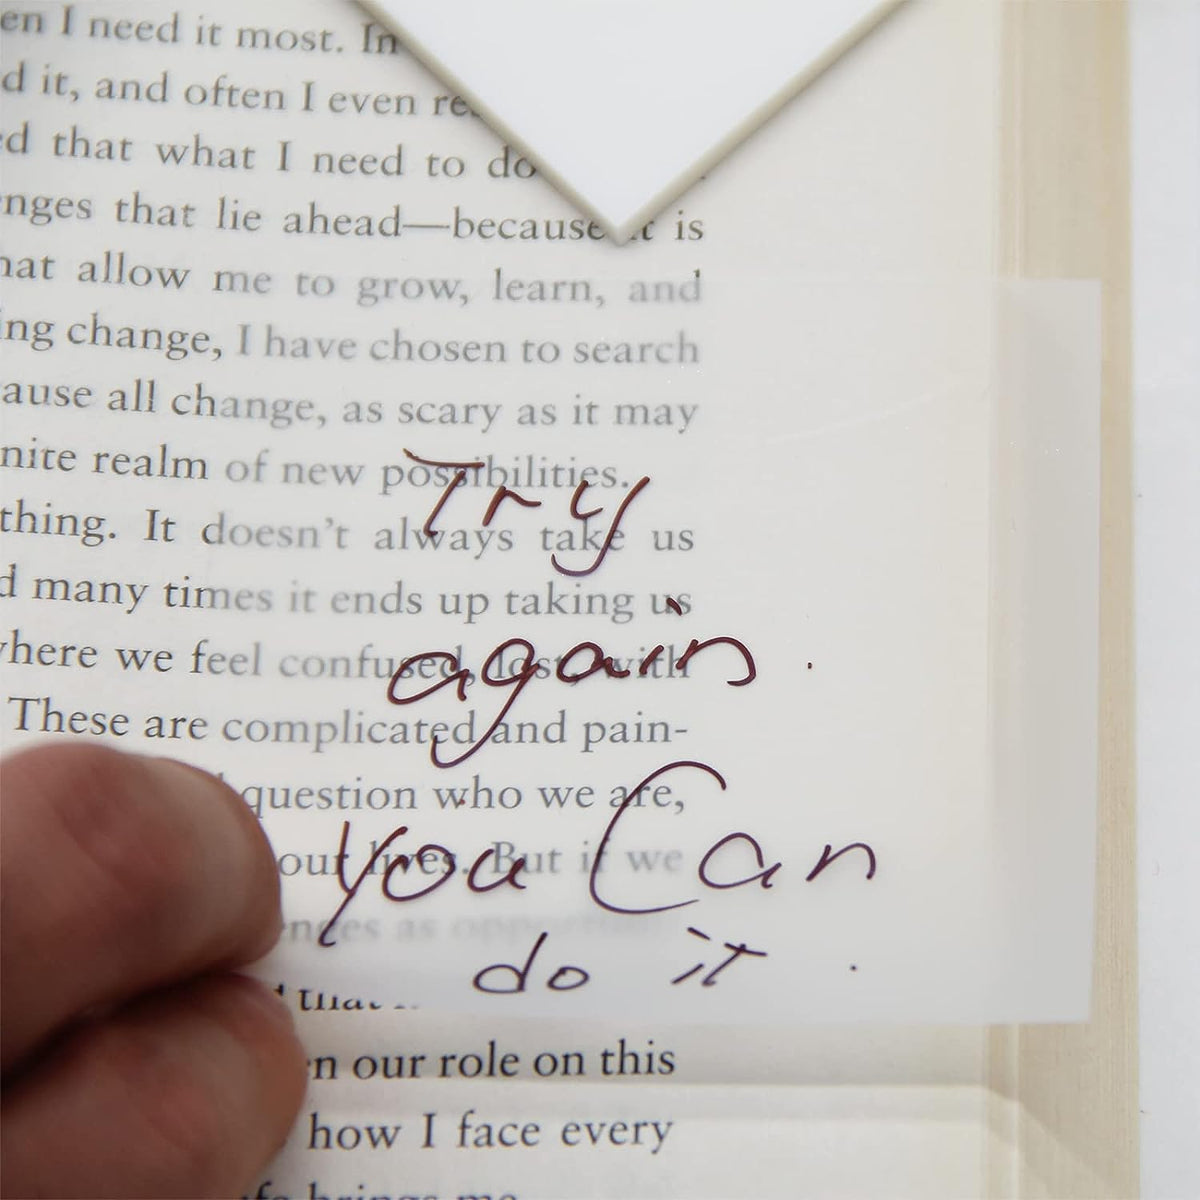 en I need it most. In
d it, and often I even re
ed that what I need to do
nges that lie ahead—because it is
hat allow me to grow, learn, and
ing change, I have chosen to search
ause all change, as scary as it may
nite realm of new possibilities.
thing. It doesn't always take us
d many times it ends up taking us
where we feel confused, lost, with
These are complicated and pain-
question who we are,
our lives. But if we
enges as
Try
again.
you Can
do it.
n our role on this
how I face every
brings me